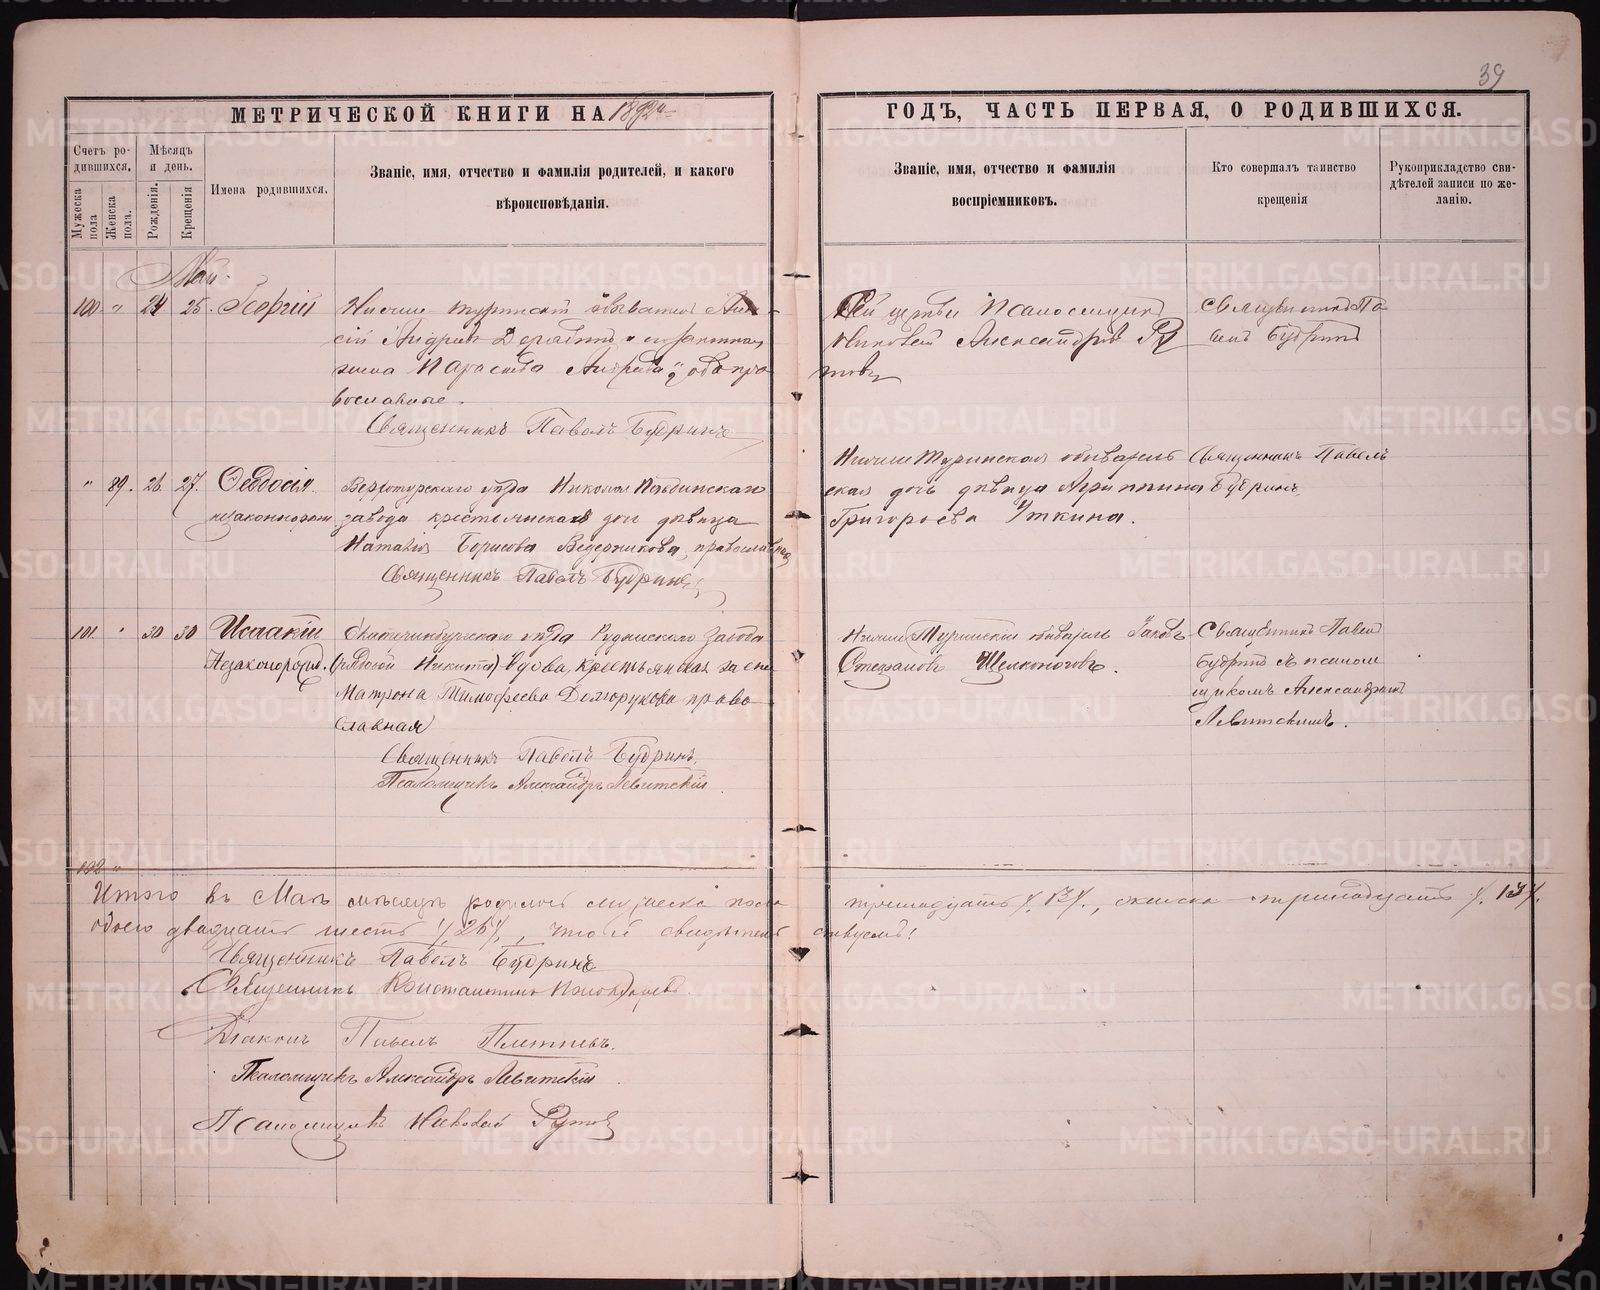 39
МЕТРИЧЕСКОЙ КНИГИ НА 1892й
ГОДЪ, ЧАСТЬ ПЕРВАЯ, О РОДИВШИХСЯ.
Счетъ ро-
дившихся.
Мужеска
пола
Женска
пола.
Мѣсяцъ
и день.
Рожденія.
Крещенія
Имена родившихся.
Званіе, имя, отчество и фамилія родителей, и какого
вѣроисповѣданія.
Званіе, имя, отчество и фамилія
воспріемниковъ.
Кто совершалъ таинство
крещенія
Рукоприкладство сви-
дѣтелей записи по же-
ланію.
Май.
100 " 24 25. Георгій
жена Параскева обѣ пра
вославные.
Священникъ Павелъ Будринъ
Сей церкви Псаломщикъ
Александровъ
Священникъ Па
велъ Будринъ
" 89. 26. 27. Ѳеодосія
незаконнорож.
Верхотурскаго уѣзда Николае Павдинскаго
завода крестьянская дочь дѣвица
Наталія Борисова Ведерникова, православная
Священникъ Павелъ Будринъ
Нижне Туринскаго обыватель
ская дочь дѣвица Агриппина
Григорьева Уткина.
Священникъ Павелъ
Будринъ
101. " 30 30 Исаакій
Незаконорожд.
Екатеринбургскаго уѣзда Рудянскаго завода
вдова, крестьянская жена
Матрона Тимофеева Долгорукова право
славная
Священникъ Павелъ Будринъ
Псаломщикъ Александръ Левитскій
Нижне Туринскій обыватель Іаковъ
Степановъ Щелконоговъ.
Священникъ Павелъ
Будринъ съ псалом
щикомъ Александромъ
Левитскимъ.
102 "
Итого въ Маѣ мѣсяцѣ родилось мужеска пола тринадцать /. 13 /., женска тринадцать /. 13 /.
обоего двадцать шесть /. 26 /., что и свидѣтель ствуемъ:
Священникъ Павелъ Будринъ
Священникъ Константинъ
Діаконъ Павелъ Плетневъ.
Псаломщикъ Александръ Левитскій
Псаломщикъ Николай
METRIKI.GASO-URAL.RU